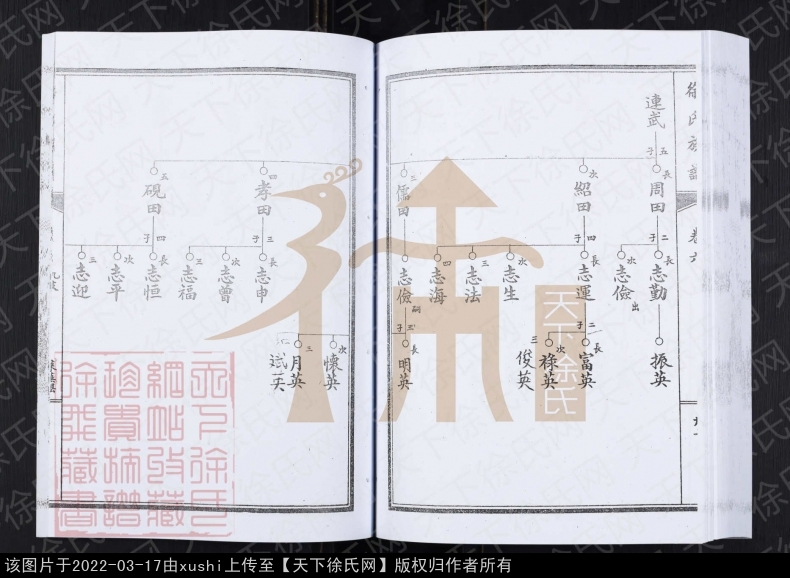 徐氏族譜
卷六
連武
五子
長
周田
次
紹田
三
儒田
四
孝田
五
硯田
二子
長
志勤
次
志儉
出
四子
長
志運
次
志生
三
志法
四
志海
志儉
嗣
三子
長
志申
次
志曾
三
志福
四子
長
志恒
次
志平
三
志迎
振英
二子
長
富英
次
祿英
三
俊英
三子
長
明英
次
懷英
三
月英
天下徐氏
天下徐氏网
该图片于2022-03-17由xushi上传至【天下徐氏网】版权归作者所有